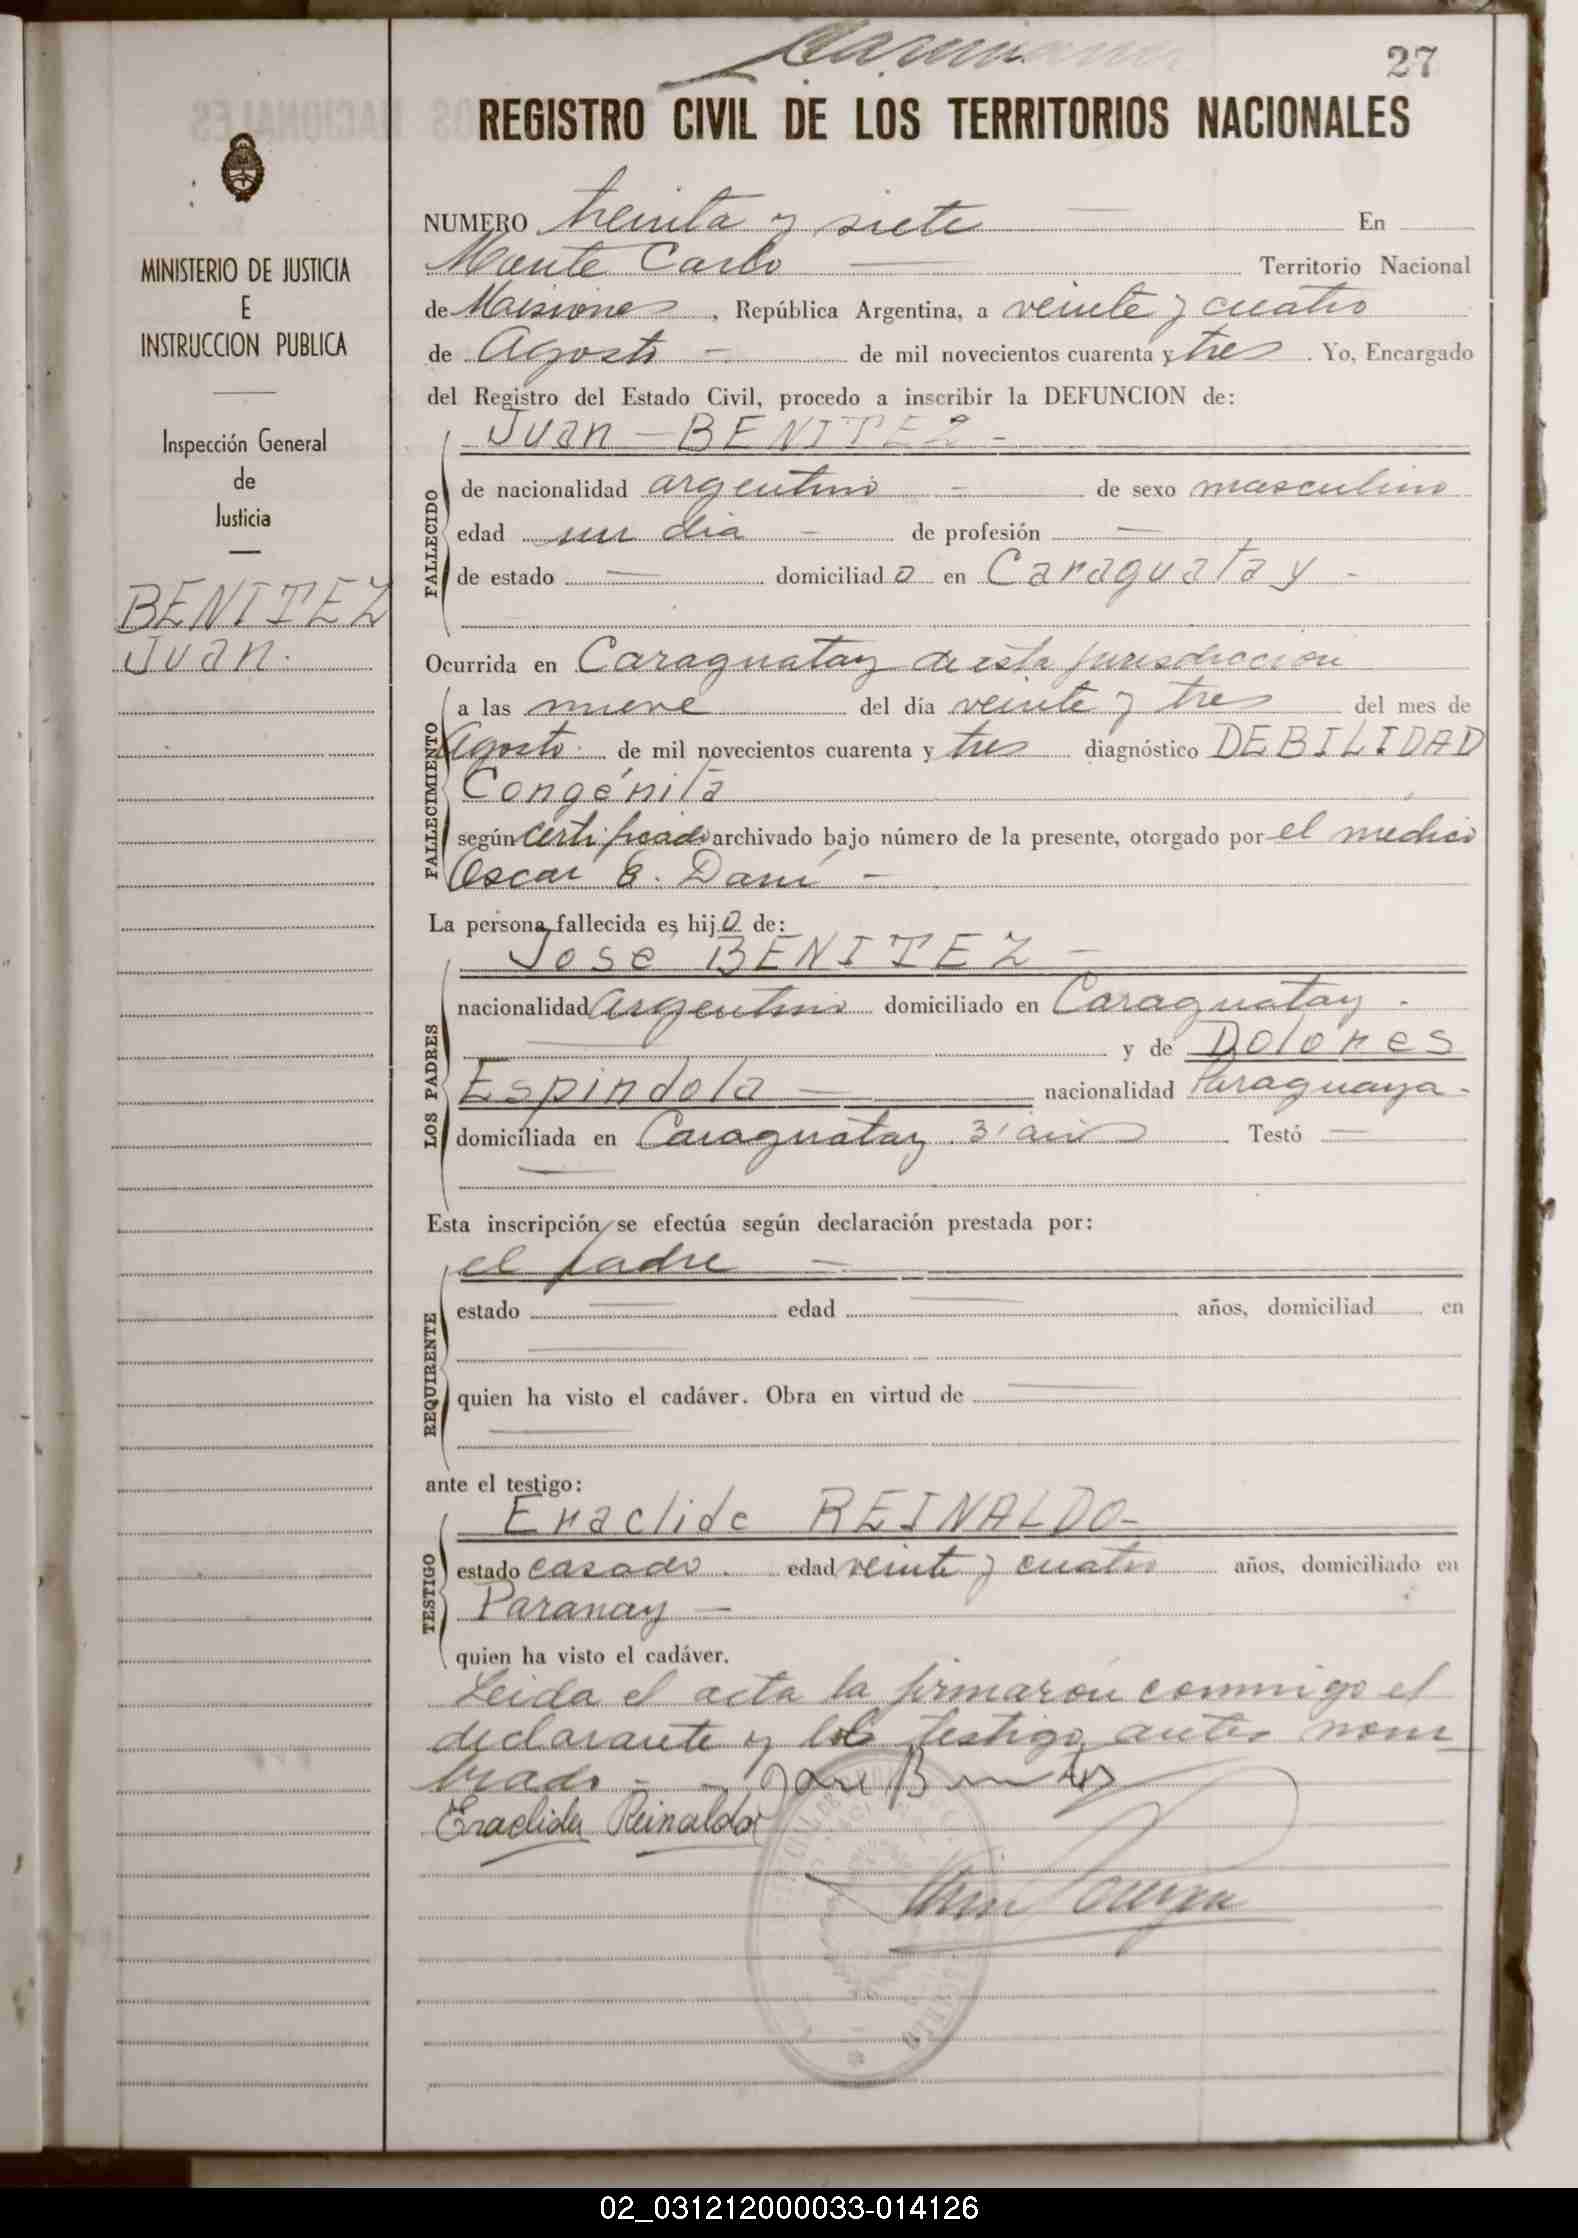 27
REGISTRO CIVIL DE LOS TERRITORIOS NACIONALES
MINISTERIO DE JUSTICIA
E
INSTRUCCION PUBLICA
Inspección General
de
Justicia
BENITEZ
Juan.
NUMERO treinta y siete En
Monte Carlo Territorio Nacional
de Misiones, República Argentina, a veinte y cuatro
de Agosto - de mil novecientos cuarenta y tres. Yo, Encargado
del Registro del Estado Civil, procedo a inscribir la DEFUNCION de:
Juan - BENITEZ -
FALLECIDO
de nacionalidad argentino - de sexo masculino
edad un dia - de profesión —
de estado — domiciliado en Caraguatay -
Ocurrida en Caraguatay de esta jurisdiccion
FALLECIMIENTO
a las nueve del día veinte y tres del mes de
Agosto. de mil novecientos cuarenta y tres diagnóstico DEBILIDAD
Congénita
según certificado archivado bajo número de la presente, otorgado por el medico
Oscar E. Dami -
La persona fallecida es hijo de:
José BENITEZ -
LOS PADRES
nacionalidad Argentino domiciliado en Caraguatay.
y de Dolores
Espindola — nacionalidad Paraguaya -
domiciliada en Caraguatay. Testó —
Esta inscripción se efectúa según declaración prestada por:
el padre -
REQUIRENTE
estado — edad — años, domiciliad en
quien ha visto el cadáver. Obra en virtud de —
ante el testigo:
Eraclide REINALDO -
TESTIGO
estado casado. edad veinte y cuatro años, domiciliado en
Paranay -
quien ha visto el cadáver.
Leida el acta la firmaron conmigo el
declarante y el testigo antes nom
brado - - José Benitez
Eraclides Reinaldo
02_031212000033-014126